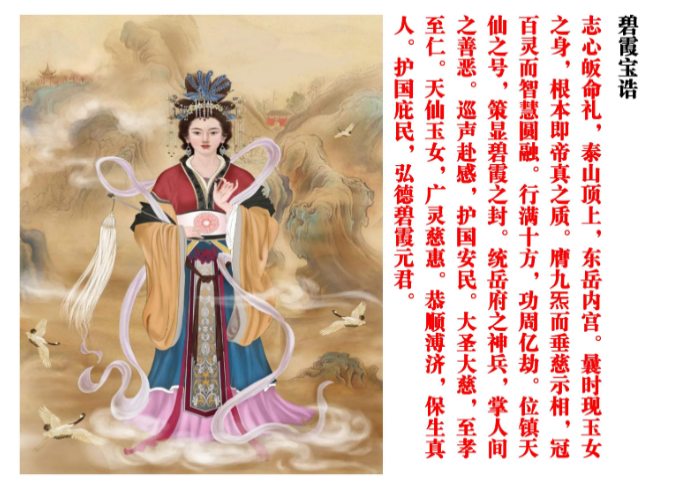 碧霞宝诰
志心皈命礼，泰山顶上，东岳内宫。曩时现玉女
之身，根本即帝真之质。膺九炁而垂慈示相，冠
百灵而智慧圆融。行满十方，功周亿劫。位镇天
仙之号，策显碧霞之封。统岳府之神兵，掌人间
之善恶。巡声赴感，护国安民。大圣大慈，至孝
至仁。天仙玉女，广灵慈惠。恭顺溥济，保生真
人。护国庇民，弘德碧霞元君。